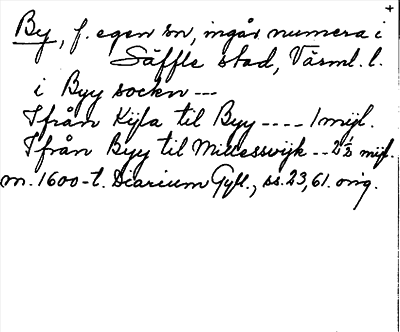 +
By, f. egen sn, ingår numera i
Säffle stad, Värml. l.
i Byy sockn ---
Ifrån Kijla til Byy ---- 1 mijl.
Ifrån Byy til Millessvijk -- 2½ mijl.
m. 1600-t. Diarium Gyll., ss. 23, 61. orig.